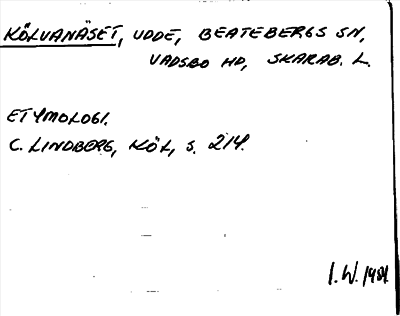 KÖLVANÄSET, UDDE, BEATEBERGS SN,
VADSBO HD, SKARAB. L.
ETYMOLOGI.
C. LINDBERG, KÖL, S. 214.
I.W. 1981.